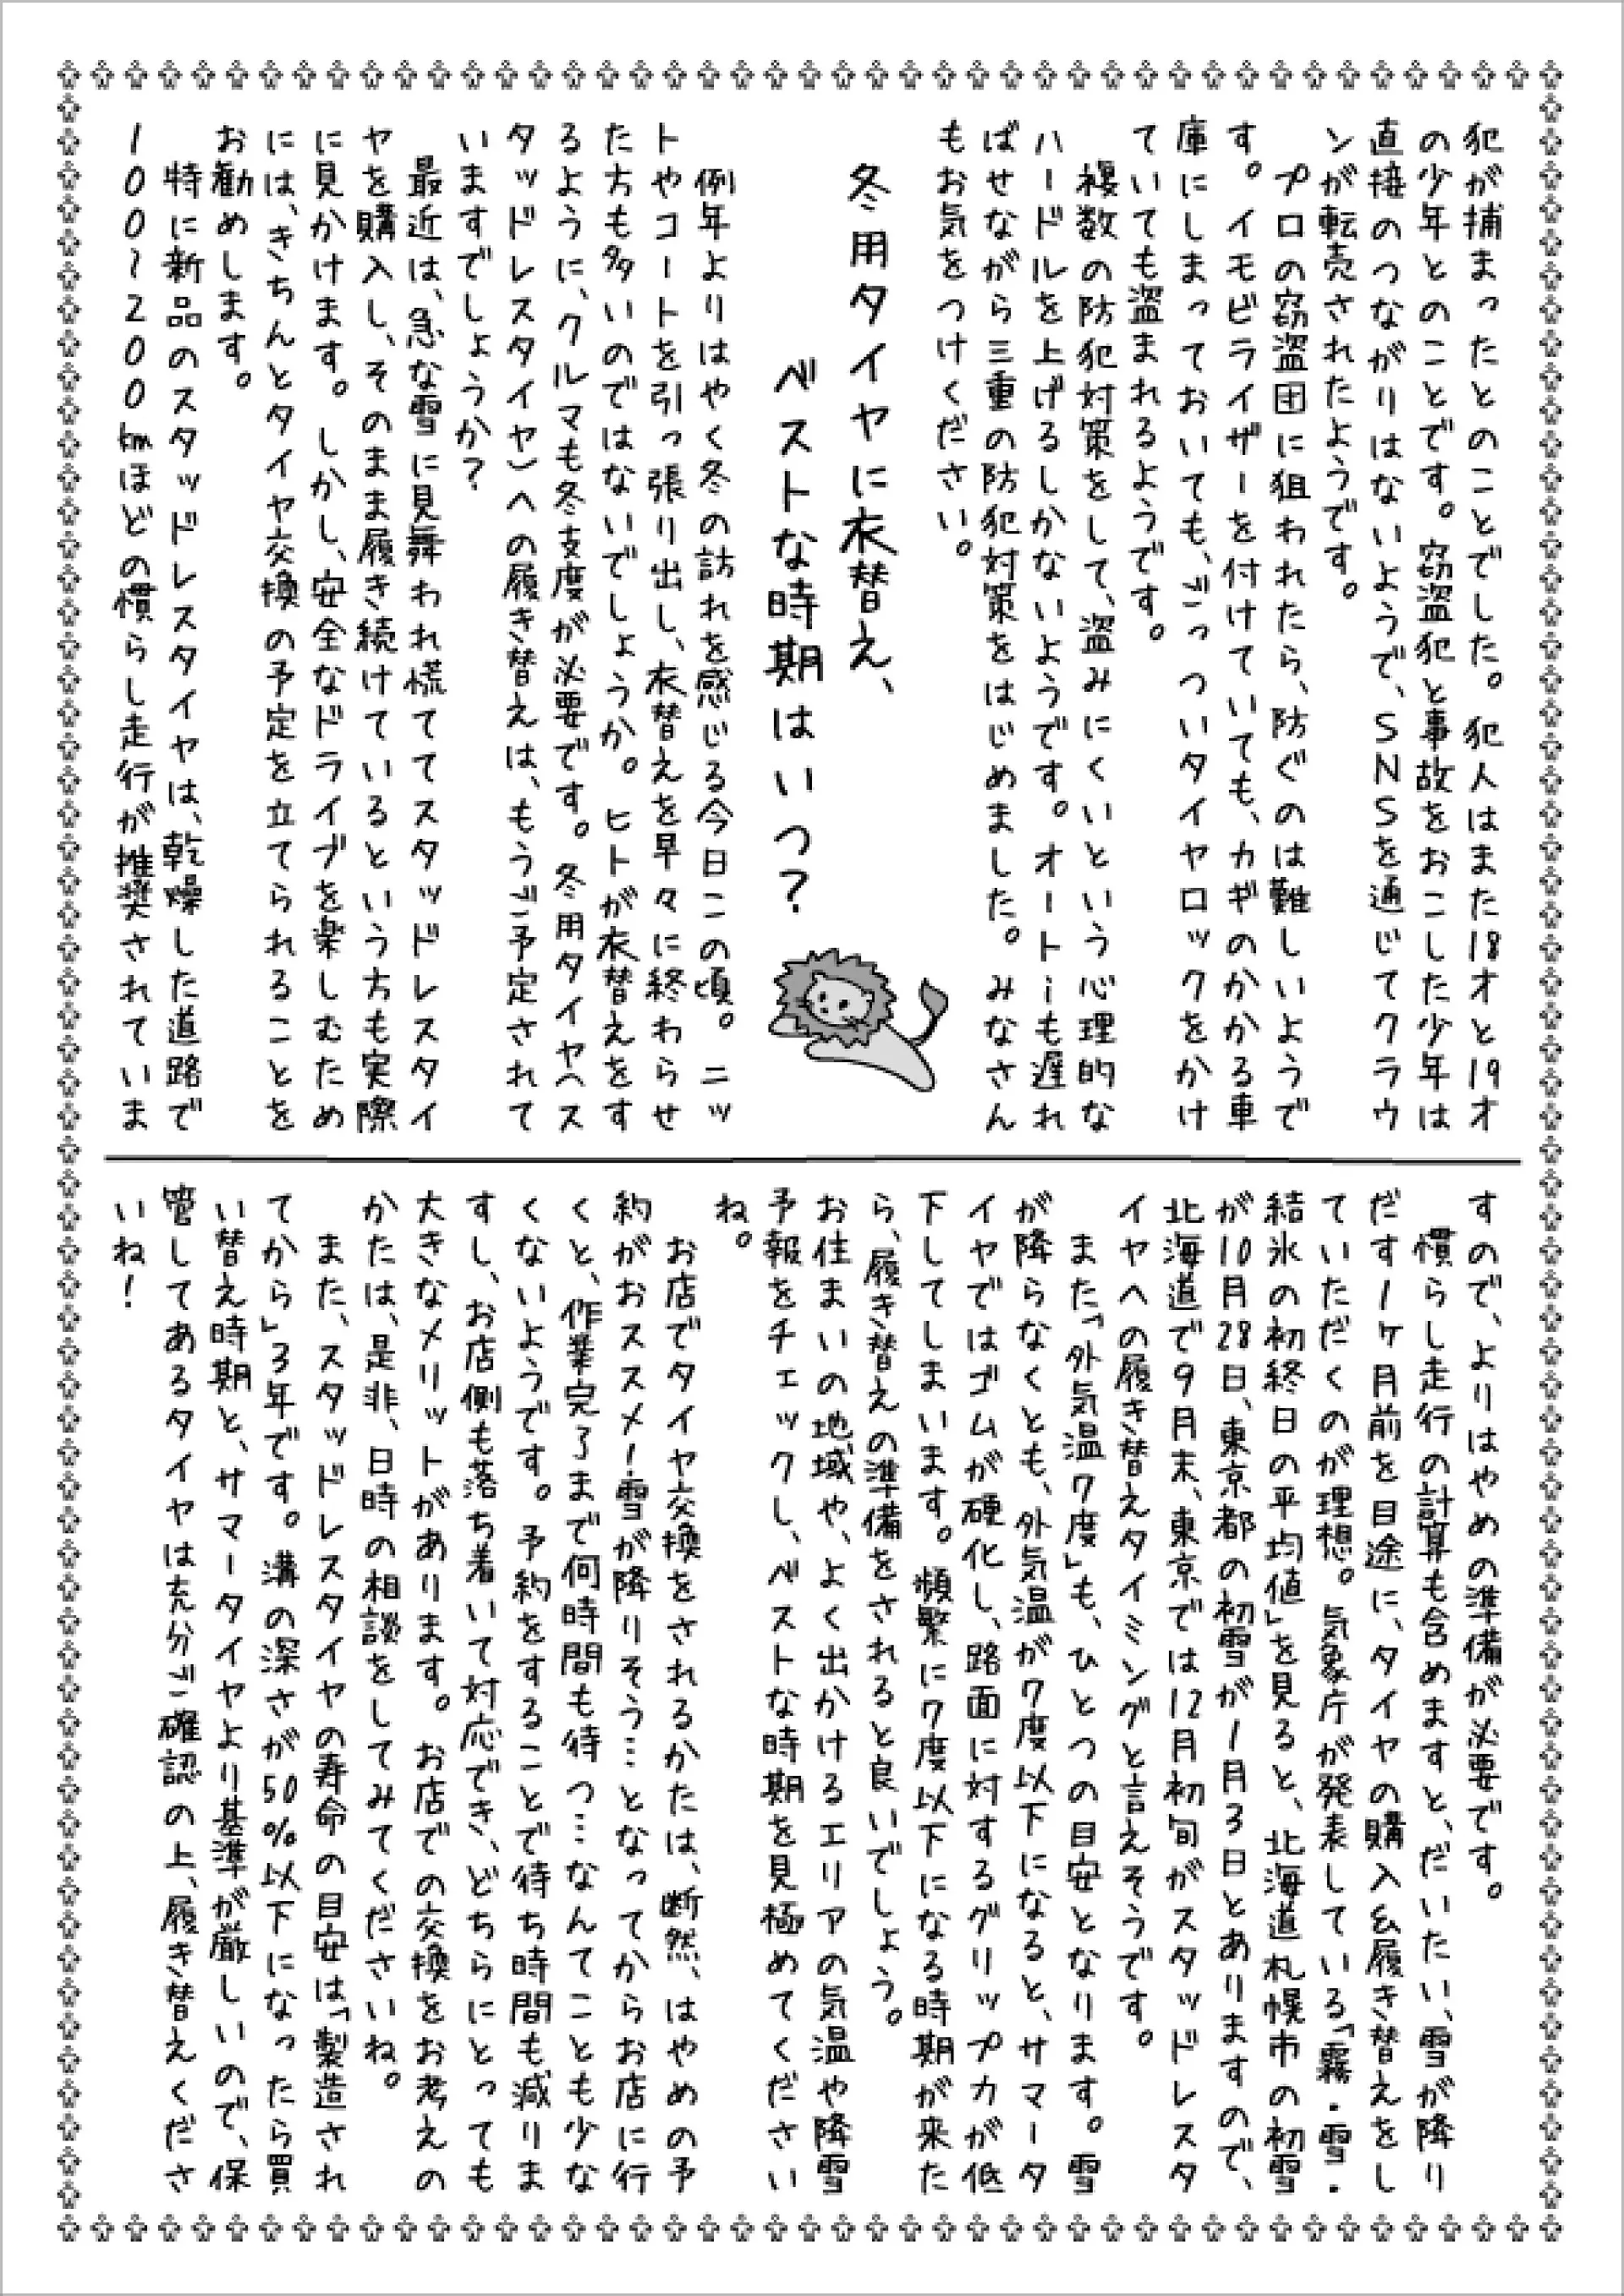 犯が捕まったとのことでした。犯人はまた18才と19才
の少年とのことです。窃盗犯と事故をおこした少年は
直接のつながりはないようで、SNSを通じてクラウ
ンが転売されたようです。
プロの窃盗団に狙われたら、防ぐのは難しいようで
す。イモビライザーを付けていても、カギのかかる車
庫にしまっておいても、ごっついタイヤロックをかけ
ていても盗まれるようです。
複数の防犯対策をして、盗みにくいという心理的な
ハードルを上げるしかないようです。オートiも遅れ
ばせながら三重の防犯対策をはじめました。みなさん
もお気をつけください。
冬用タイヤに衣替え、
ベストな時期はいつ?
例年よりはやく冬の訪れを感じる今日この頃。ニッ
トやコートを引っ張り出し、衣替えを早々に終わらせ
た方も多いのではないでしょうか。ヒトが衣替えをす
るように、クルマも冬支度が必要です。冬用タイヤ(ス
タッドレスタイヤ)への履き替えは、もうご予定されて
いますでしょうか?
最近は、急な雪に見舞われ慌ててスタッドレスタイ
ヤを購入し、そのまま履き続けているという方も実際
に見かけます。しかし、安全なドライブを楽しむため
には、きちんとタイヤ交換の予定を立てられることを
お勧めします。
特に新品のスタッドレスタイヤは、乾燥した道路で
100~200kmほどの慣らし走行が推奨されていま
すので、よりはやめの準備が必要です。
慣らし走行の計算も含めますと、だいたい、雪が降り
だす1ヶ月前を目途に、タイヤの購入&履き替えをし
ていただくのが理想。気象庁が発表している「霧・雪・
結氷の初終日の平均値」を見ると、北海道札幌市の初雪
が10月28日、東京都の初雪が1月3日とありますので、
北海道で9月末、東京では12月初旬がスタッドレスタ
イヤへの履き替えタイミングと言えそうです。
また「外気温7度」も、ひとつの目安となります。雪
が降らなくとも、外気温が7度以下になると、サマータ
イヤではゴムが硬化し、路面に対するグリップ力が低
下してしまいます。頻繁に7度以下になる時期が来た
ら、履き替えの準備をされると良いでしょう。
お住まいの地域や、よく出かけるエリアの気温や降雪
予報をチェックし、ベストな時期を見極めてください
ね。
お店でタイヤ交換をされるかたは、断然、はやめの予
約がおススメ!雪が降りそう…となってからお店に行
くと、作業完了まで何時間も待つ…なんてことも少な
くないようです。予約をすることで待ち時間も減りま
すし、お店側も落ち着いて対応でき、どちらにとっても
大きなメリットがあります。お店での交換をお考えの
かたは、是非、日時の相談をしてみてくださいね。
また、スタッドレスタイヤの寿命の目安は「製造され
てから」3年です。溝の深さが50%以下になったら買
い替え時期と、サマータイヤより基準が厳しいので、保
管してあるタイヤは充分ご確認の上、履き替えくださ
いね!